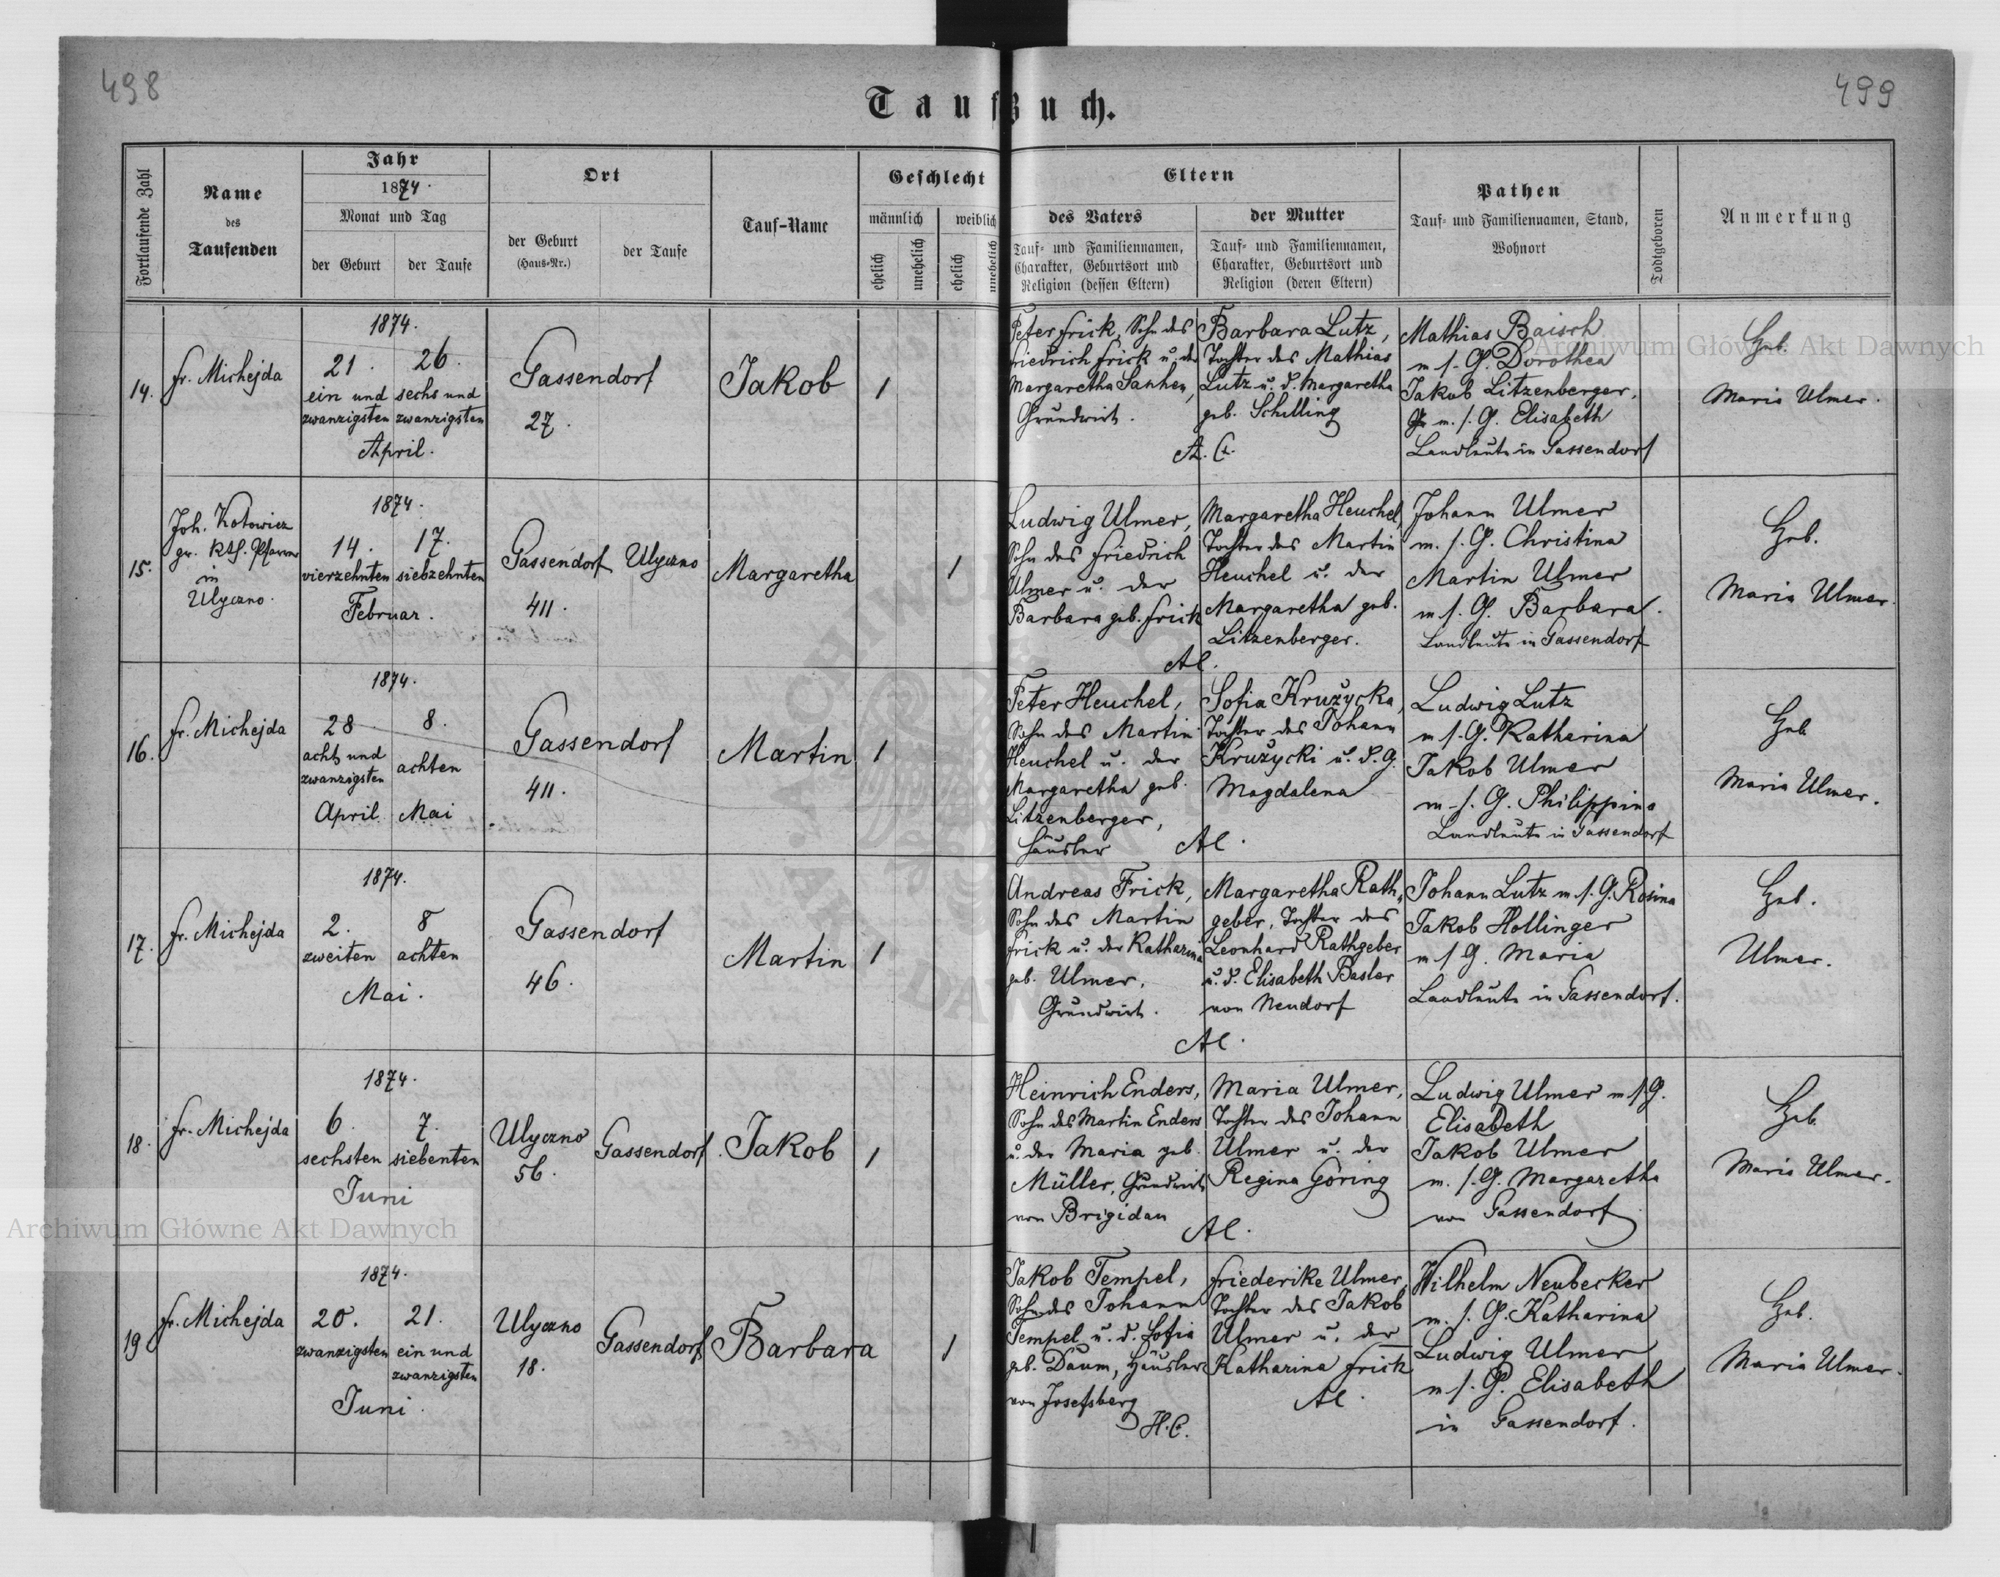 498
499
Taufbuch.
Fortlaufende Zahl
Name
des
Taufenden
Jahr
1874.
Monat und Tag
der Geburt
der Taufe
Ort
der Geburt
(Haus-Nr.)
der Taufe
Tauf-Name
Geschlecht
männlich
weiblich
ehelich
unehelich
ehelich
unehelich
Eltern
des Vaters
Tauf- und Familiennamen,
Charakter, Geburtsort und
Religion (dessen Eltern)
der Mutter
Tauf- und Familiennamen,
Charakter, Geburtsort und
Religion (deren Eltern)
Pathen
Tauf- und Familiennamen, Stand,
Wohnort
Todtgeboren
Anmerkung
14.
Fr. Michejda
1874.
21. 26.
ein und sechs und
zwanzigsten zwanzigsten
April.
Gassendorf
27.
Jakob
1
Peter Frick, Sohn des
Friedrich Frick u. der
Margaretha
Grundwirt.
Barbara Lutz,
Tochter des Mathias
Lutz u. d. Margaretha
geb. Schilling
A. C.
Mathias Baisch
m. s. G. Dorothea
Jakob Litzenberger,
m. s. G. Elisabeth
Landleute in Gassendorf
Geb.
Maria Ulmer.
15.
Joh. Kotowicz
gr. kth. Pfarrer
in
Ulyczno.
1874.
14. 17.
vierzehnten siebzehnten
Februar.
Gassendorf
411.
Ulyczno
Margaretha
1
Ludwig Ulmer,
Sohn des Friedrich
Ulmer u. der
Barbara geb. Frick
Margaretha Heuchel,
Tochter des Martin
Heuchel u. der
Margaretha geb.
Litzenberger.
AC.
Johann Ulmer
m. s. G. Christina
Martin Ulmer
m. s. G. Barbara.
Landleute in Gassendorf
Geb.
Maria Ulmer.
16.
Fr. Michejda
1874.
28 8.
acht und
zwanzigsten achten
April Mai
Gassendorf
411.
Martin
1
Peter Heuchel,
Sohn des Martin
Heuchel u. der
Margaretha geb.
Litzenberger,
Häusler
Sofia Kružycka,
Tochter des Johann
Kružycki u. s. G.
Magdalena
AC.
Ludwig Lutz
m. s. G. Katharina
Jakob Ulmer
m. s. G. Philippina
Landleute in Gassendorf
Geb
Maria Ulmer.
17.
Fr. Michejda
1874.
2. 8
zweiten achten
Mai.
Gassendorf
46.
Martin
1
Andreas Frick,
Sohn des Martin
Frick u. der Katharina
geb. Ulmer,
Grundwirt.
Margaretha Rath-
geber, Tochter des
Leonhard Rathgeber
u. d. Elisabeth Basler
von Neudorf
AC.
Johann Lutz m. s. G. Rosina
Jakob Hollinger
m. s. G. Maria
Landleute in Gassendorf.
Geb.
Ulmer.
18.
Fr. Michejda
1874.
6. 7.
sechsten siebenten
Juni
Ulyczno
56.
Gassendorf
Jakob
1
Heinrich Enders,
Sohn des Martin Enders
u. der Maria geb.
Müller, Grundwirt
von Brigidau
Maria Ulmer,
Tochter des Johann
Ulmer u. der
Regina Göring
AC.
Ludwig Ulmer m. s. G.
Elisabeth
Jakob Ulmer
m. s. G. Margaretha
von Gassendorf
Geb
Maria Ulmer.
19
Fr. Michejda
1874.
20. 21.
zwanzigsten ein und
zwanzigsten
Juni.
Ulyczno
18.
Gassendorf
Barbara
1
Jakob Tempel,
Sohn des Johann
Tempel u. d. Sofia
geb. Daum, Häusler
von Josefsberg
H. C.
Friederike Ulmer,
Tochter des Jakob
Ulmer u. der
Katharina Frick
AC.
Wilhelm Neubecker
m. s. G. Katharina
Ludwig Ulmer
m. s. G. Elisabeth
in Gassendorf.
Geb.
Maria Ulmer.
Archiwum Główne Akt Dawnych
Archiwum Główne Akt Dawnych